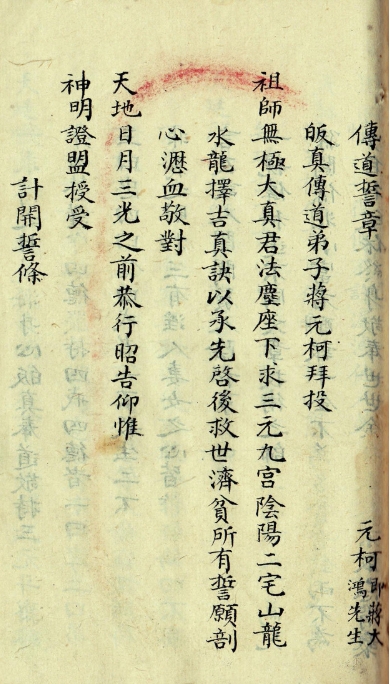 傳道誓章
元柯即蔣大
鴻先生
皈真傳道弟子蔣元柯拜投
祖師無極大真君法塵座下求三元九宮陰陽二宅山龍
水龍擇吉真訣以承先啓後救世濟貧所有誓願剖
心瀝血敬對
天地日月三光之前恭行昭告仰惟
神明證盟授受
計開誓條